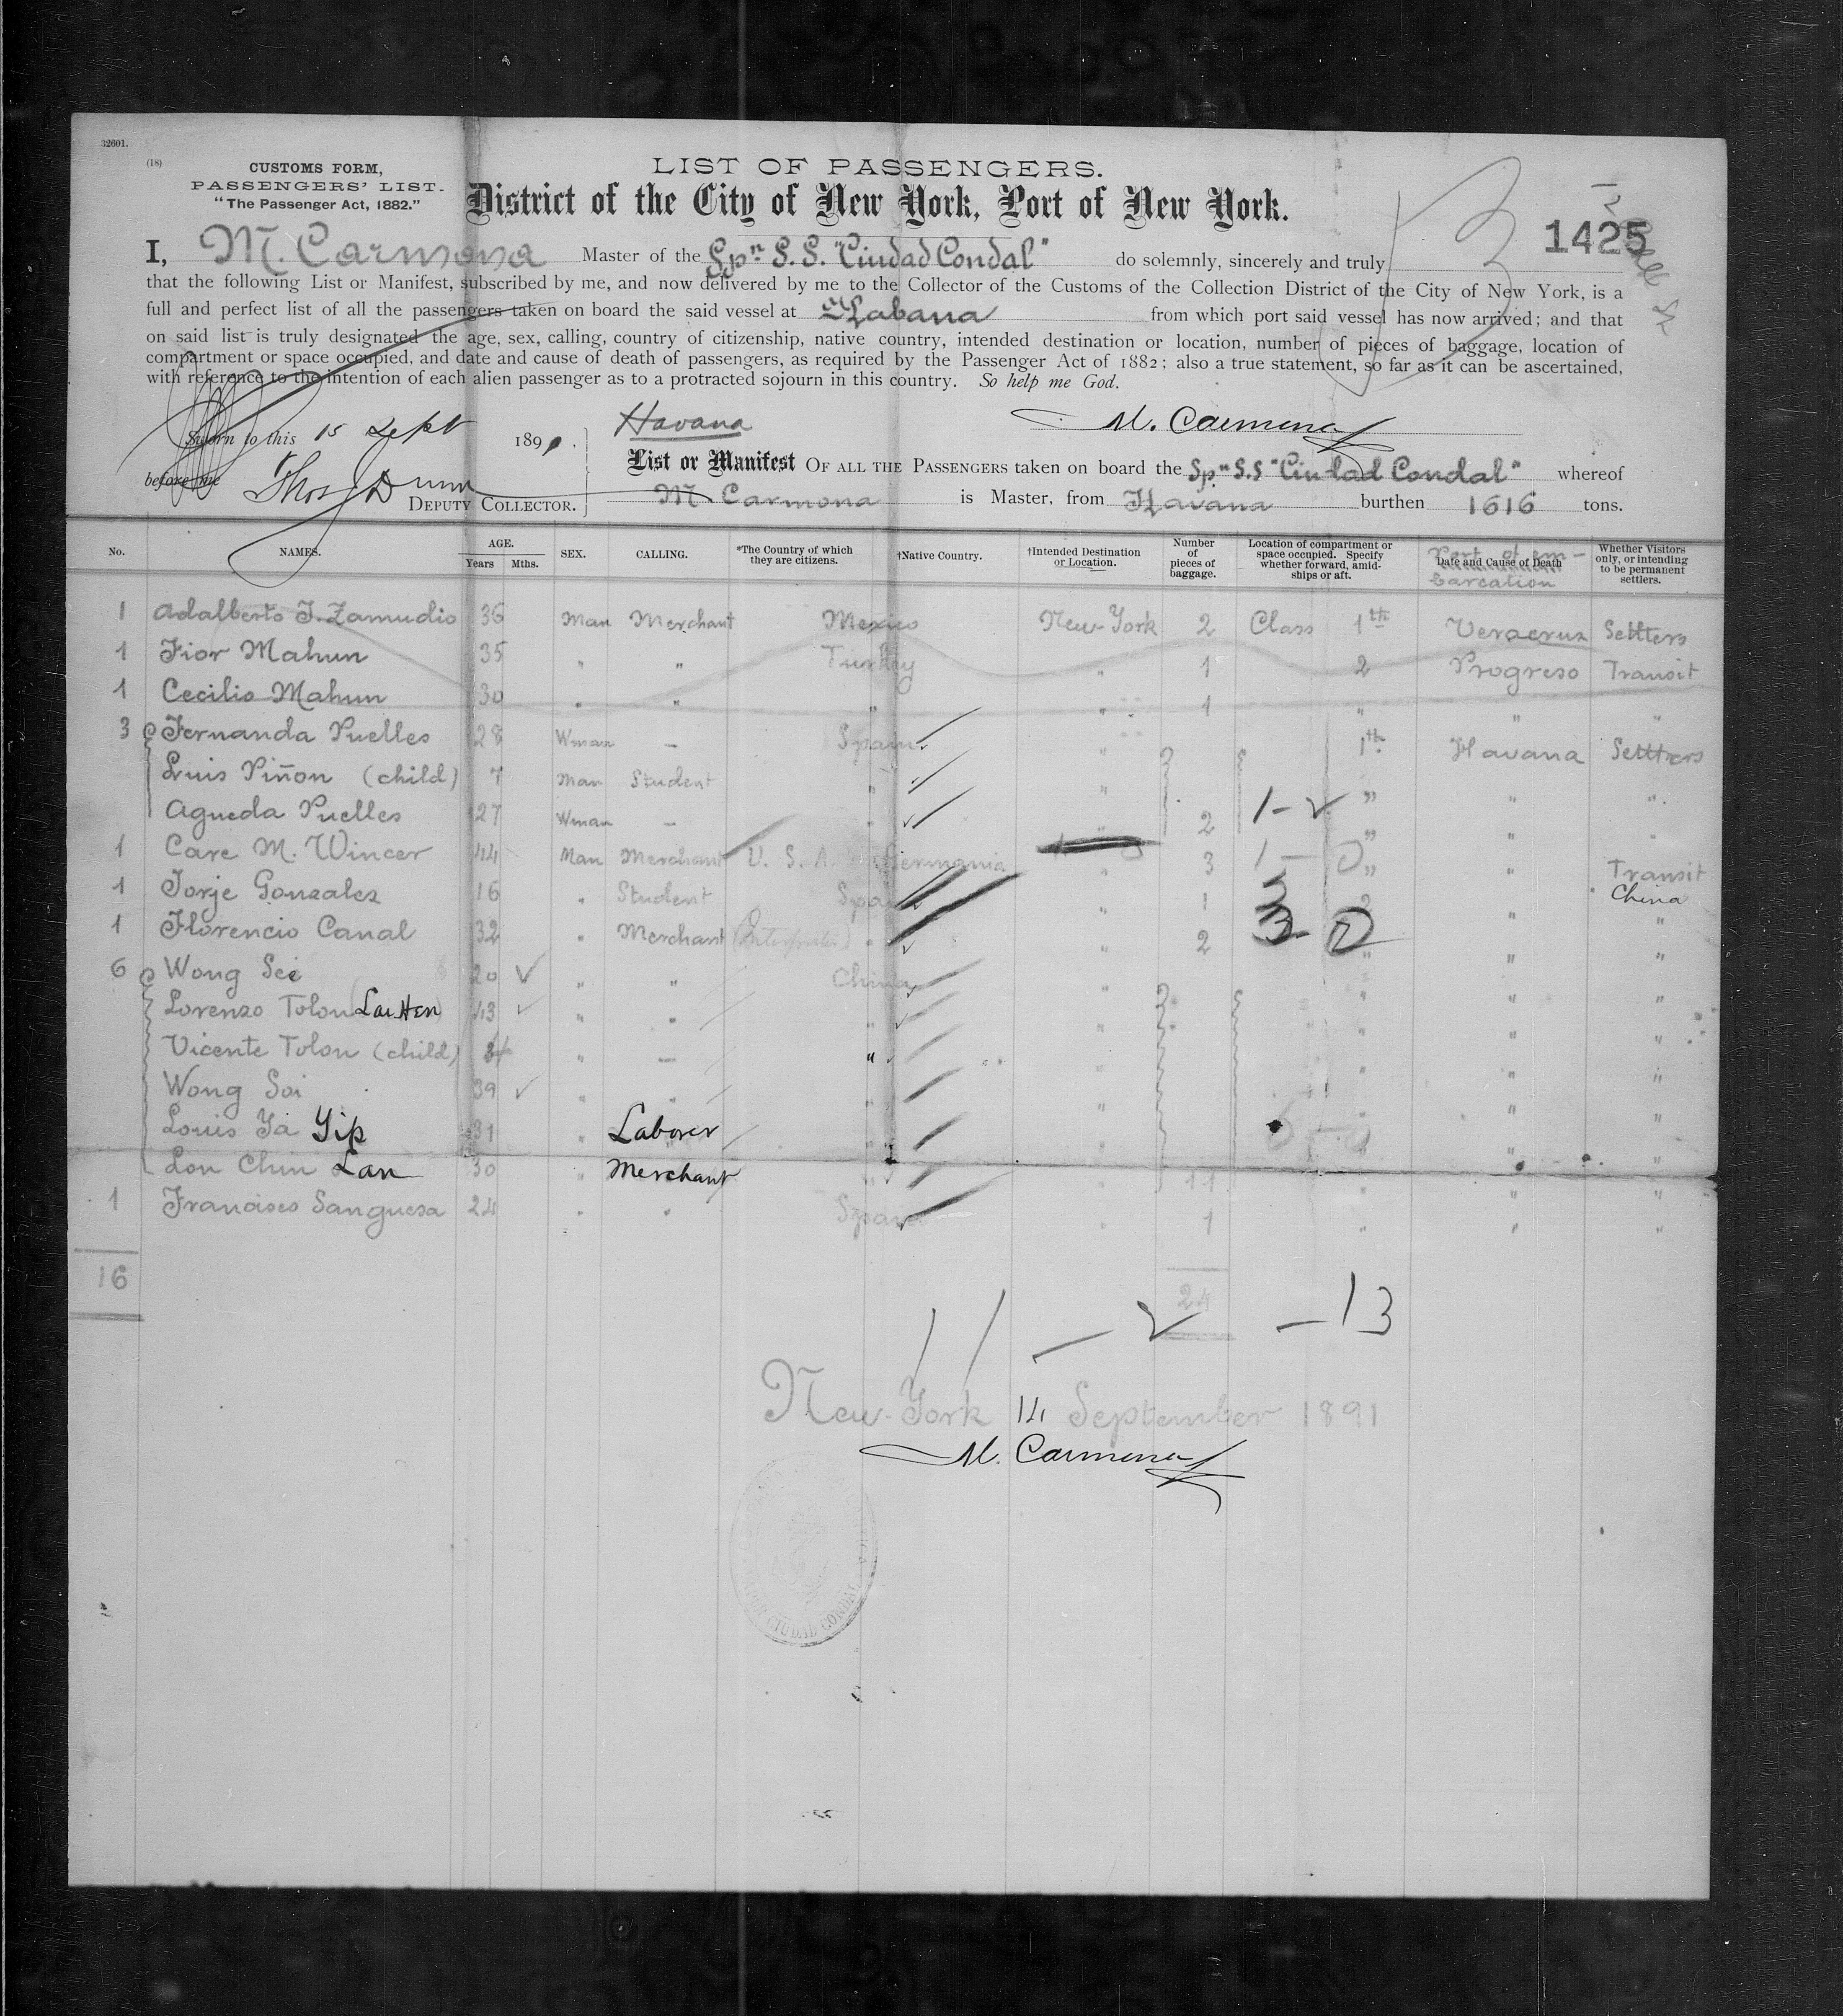 32601.
(18)
CUSTOMS FORM,
PASSENGERS' LIST.
"The Passenger Act, 1882."
LIST OF PASSENGERS.
District of the City of New York, Port of New York.
1425
I, M. Carmona Master of the Spn S. S. "Ciudad Condal" do solemnly, sincerely and truly
that the following List or Manifest, subscribed by me, and now delivered by me to the Collector of the Customs of the Collection District of the City of New York, is a
full and perfect list of all the passengers taken on board the said vessel at Habana from which port said vessel has now arrived; and that
on said list is truly designated the age, sex, calling, country of citizenship, native country, intended destination or location, number of pieces of baggage, location of
compartment or space occupied, and date and cause of death of passengers, as required by the Passenger Act of 1882; also a true statement, so far as it can be ascertained,
with reference to the intention of each alien passenger as to a protracted sojourn in this country. So help me God.
Sworn to this 15 Sept 189
before me Thos J Dunn
DEPUTY COLLECTOR.
Havana
M. Carmona
List or Manifest OF ALL THE PASSENGERS taken on board the Spn S.S "Ciudad Condal" whereof
M Carmona is Master, from Havana burthen 1616 tons.
No. NAMES. AGE. Years Mths. SEX. CALLING. *The Country of which they are citizens. †Native Country. †Intended Destination or Location. Number of pieces of baggage. Location of compartment or space occupied. Specify whether forward, amidships or aft. Port of em- barcation Date and Cause of Death Whether Visitors only, or intending to be permanent settlers.
1 Adalberto J. Zamudio 36 Man Merchant Mexico New-York 2 Class 1th Veracruz Settters
1 Fior Mahun 35 " " Turkey " 1 2 Progreso Transit
1 Cecilio Mahun 30 " " " " 1 " " "
3 Fernanda Puelles 28 Wman — Spain " 1th Havana Settters
Luis Piñon (child) 7 Man Student " " " " "
Agueda Puelles 27 Wman — " " 2 1-2 " " "
1 Care M. Wincer 44 Man Merchant U. S. A. Germania " 3 1-0 " " Transit
1 Jorje Gonzalez 16 " Student Spain " 1 2 " China
1 Florencio Canal 32 " Merchant (Interpreter) " " 2 3 0 " " "
6 Wong See 20 " " China " " " "
Lorenzo Tolon Lau Hen 43 " " " " " " "
Vicente Tolon (child) " — " " " " "
Wong Soi 39 " " " " " "
Louis Ya Yip 31 " Laborer " " " " "
Lon Chin Lan 30 " Merchant " " 11 " " "
1 Francisco Sanguesa 24 " " Spain " 1 " " "
16
24
11 — 2 — 13
New-York 14 September 1891
M. Carmona
CIUDAD CONDAL